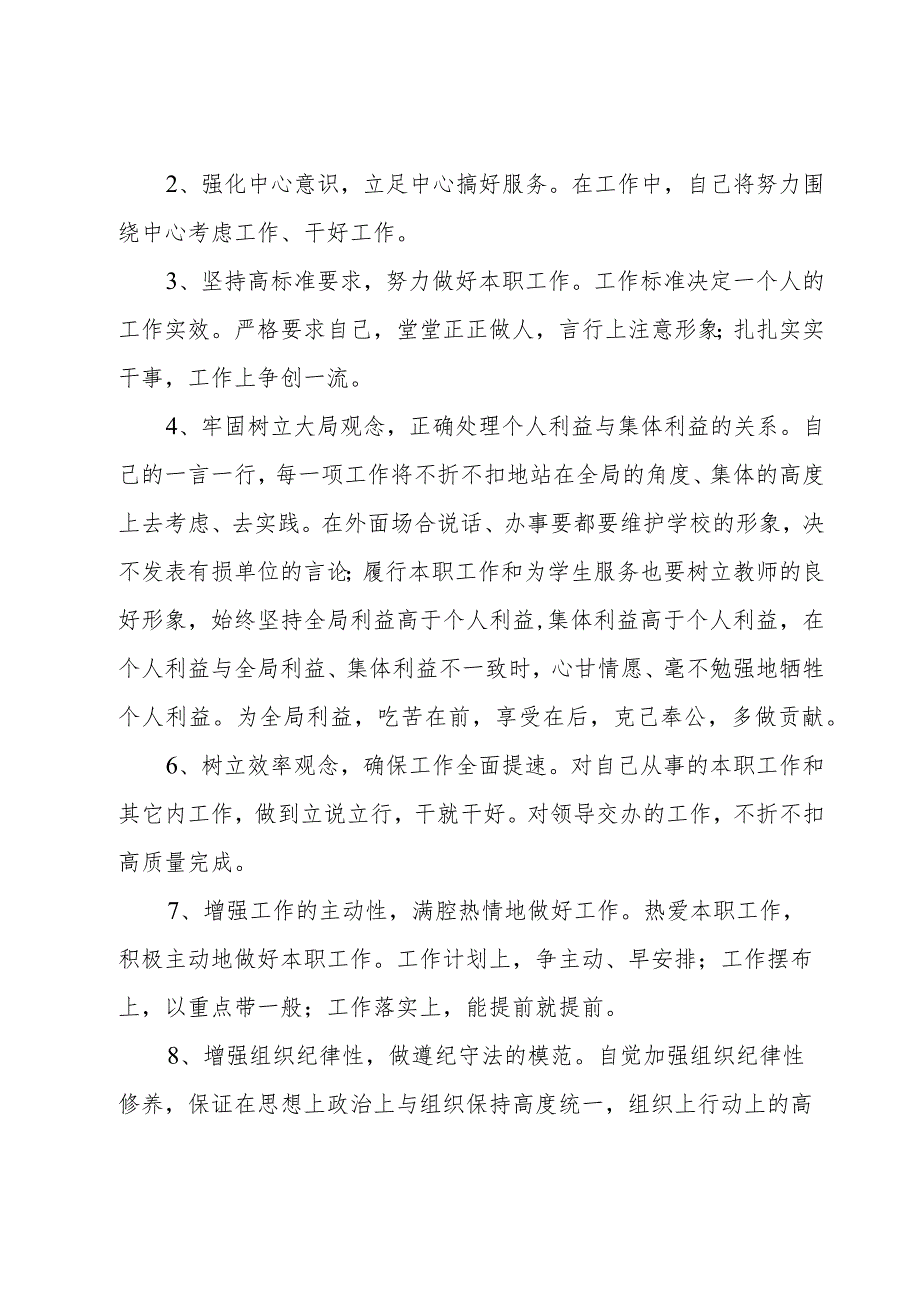 2、强化中心意识，立足中心搞好服务。在工作中，自己将努力围
绕中心考虑工作、干好工作。
3、坚持高标准要求，努力做好本职工作。工作标准决定一个人的
工作实效。严格要求自己，堂堂正正做人，言行上注意形象；扎扎实实
干事，工作上争创一流。
4、牢固树立大局观念，正确处理个人利益与集体利益的关系。自
己的一言一行，每一项工作将不折不扣地站在全局的角度、集体的高度
上去考虑、去实践。在外面场合说话、办事要都要维护学校的形象，决
不发表有损单位的言论；履行本职工作和为学生服务也要树立教师的良
好形象，始终坚持全局利益高于个人利益,集体利益高于个人利益，在
个人利益与全局利益、集体利益不一致时，心甘情愿、毫不勉强地牺牲
个人利益。为全局利益，吃苦在前，享受在后，克己奉公，多做贡献。
6、树立效率观念，确保工作全面提速。对自己从事的本职工作和
其它内工作，做到立说立行，干就干好。对领导交办的工作，不折不扣
高质量完成。
7、增强工作的主动性，满腔热情地做好工作。热爱本职工作，
积极主动地做好本职工作。工作计划上，争主动、早安排；工作摆布
上，以重点带一般；工作落实上，能提前就提前。
8、增强组织纪律性，做遵纪守法的模范。自觉加强组织纪律性
修养，保证在思想上政治上与组织保持高度统一，组织上行动上的高